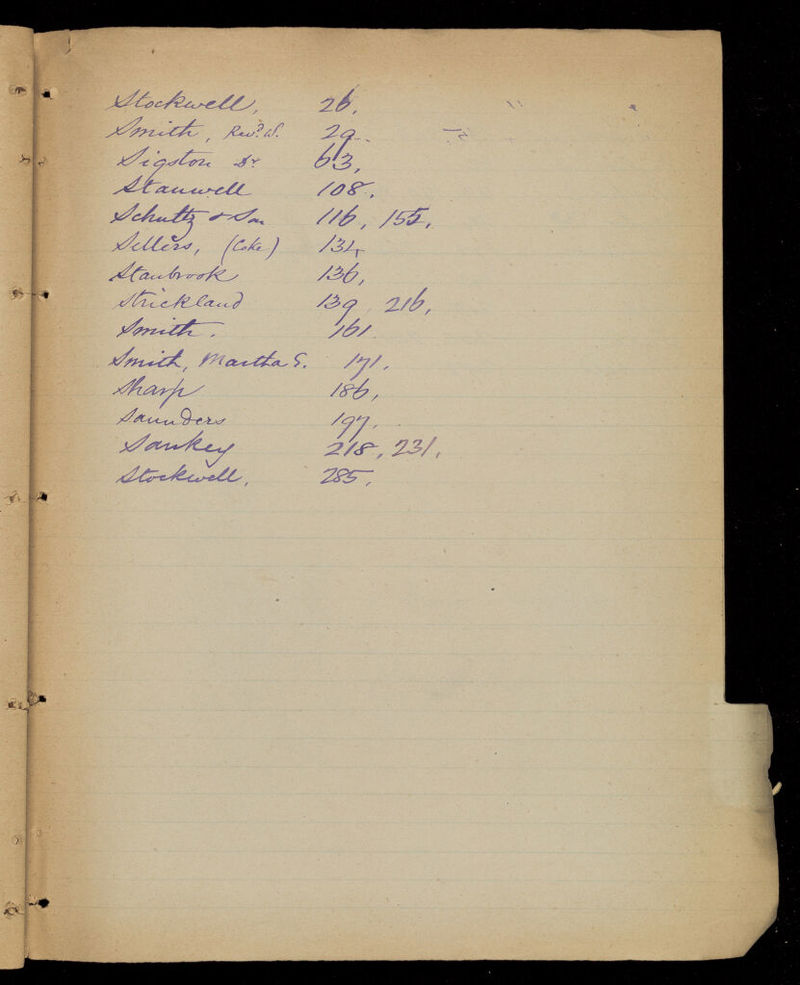 Stockwell, 26,
Smith, Revd. W. 29.
Sigston Dr 63,
Stanwell 108,
Schultz & Son 116, 155,
Sellers, (Coke) 134
Stanbrook 136,
Strickland 139, 216,
Smith. 161
Smith, Martha E. 171,
Sharp 186,
Saunders 197.
Sankey 218, 231,
Stockwell, 285,